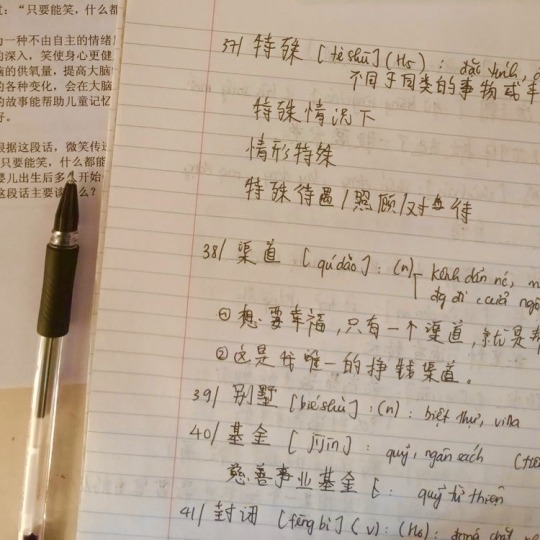 ：“只要能笑，什么都
一种不由自主的情绪
的深入，笑使身心更健
脑的供氧量，提高大脑
的各种变化，会在大脑
的故事能帮助儿童记忆
好。
根据这段话，微笑传
只要能笑，什么都能
婴儿出生后多 开始
这段话主要谈 么？
37/ 特殊 [tèshū] (H5) : đặc
不同于同类的事物或
特殊情况下
情形特殊
特殊待遇/照顾/对待
38/ 渠道 [qúdào] : (n) kênh dẫn
của
①想要幸福，只有一个渠道，就是
②这是我唯一的挣钱渠道。
39/ 别墅 [biéshù] : (n) : biệt thự, villa
40/ 基金 [jījīn] : quỹ, ngân sách
慈善事业基金 [ : quỹ từ thiện
41/ 封闭 [fēngbì] (v) : (H6) :